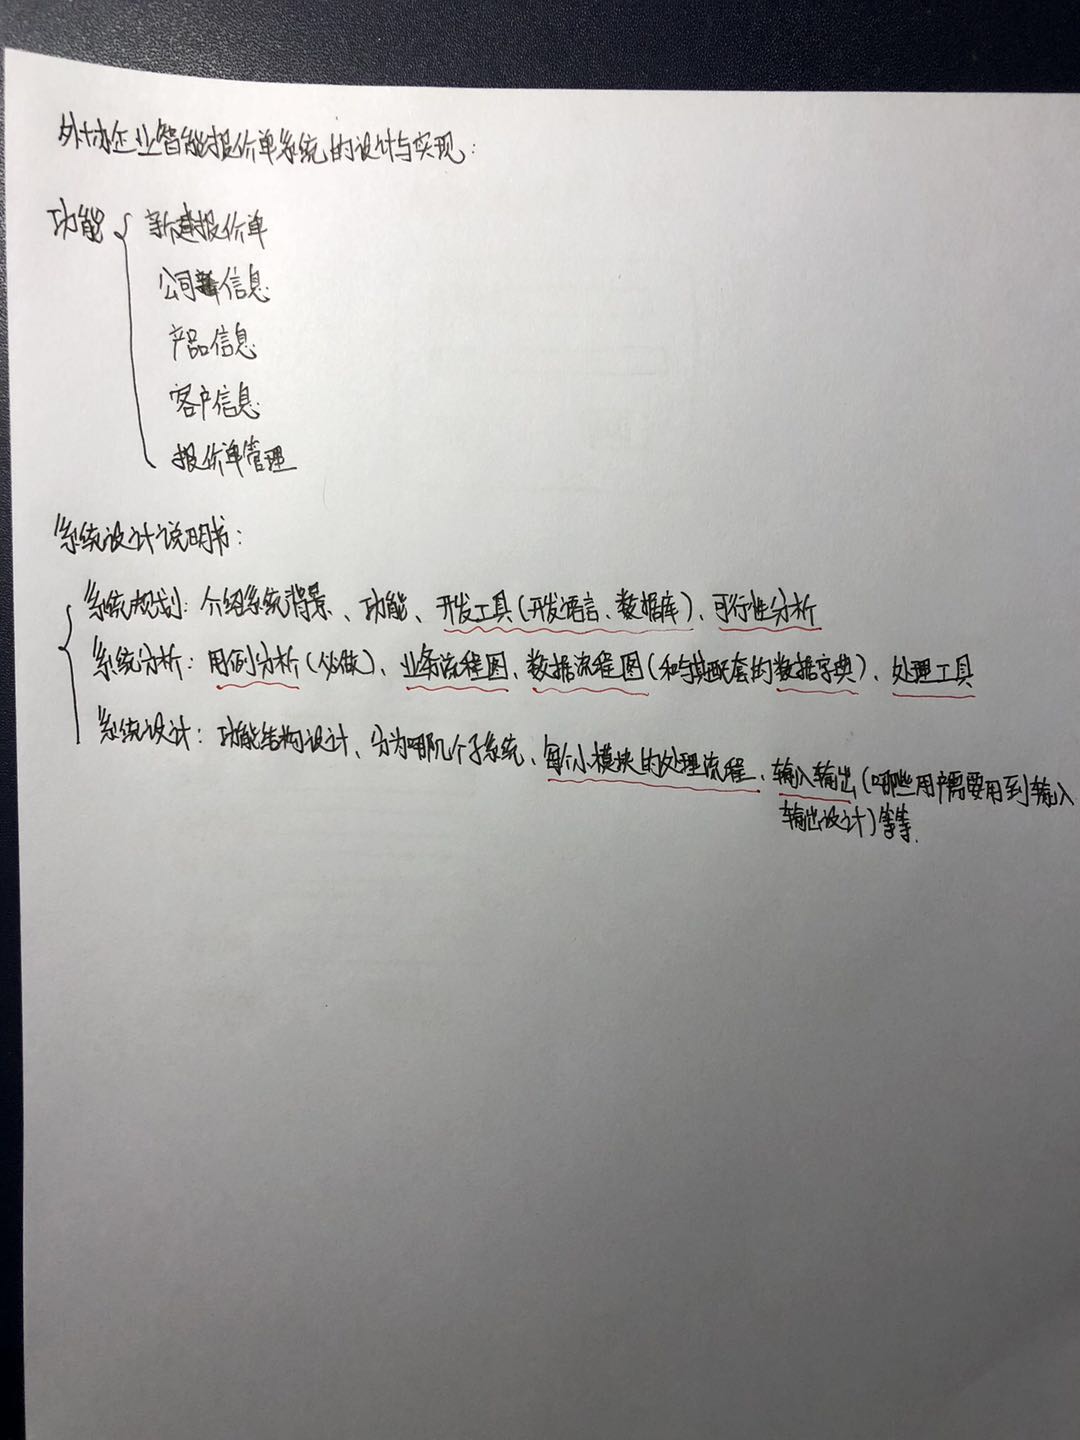 外协企业智能报价单系统的设计与实现:
功能{ 新建报价单
公司信息
产品信息
客户信息
报价单管理
系统设计说明书:
系统规划: 介绍系统背景、功能、开发工具(开发语言、数据库)、可行性分析
系统分析: 用例分析(必做)、业务流程图、数据流程图(和与其配套的数据字典)、处理工具
系统设计: 功能结构设计、分为哪几个子系统、每个小模块的处理流程、输入输出(哪些用户需要用到输入
输出设计)等等.